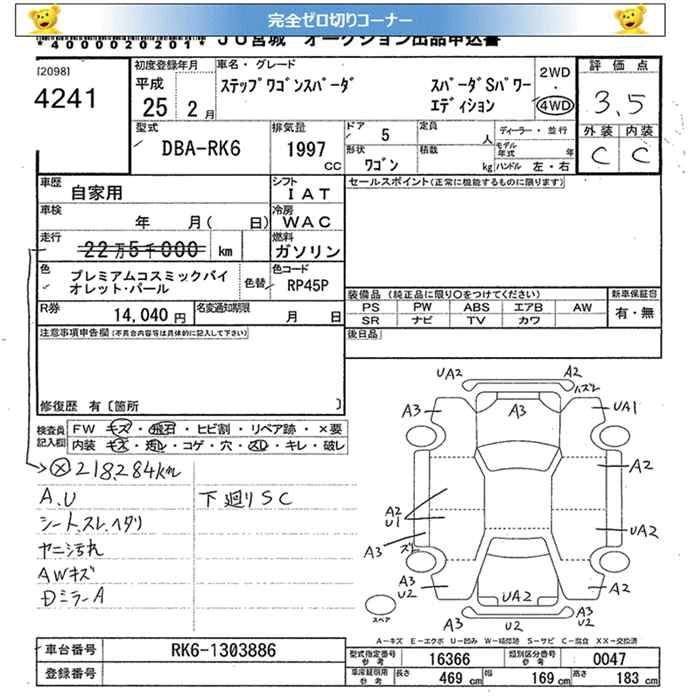 完全ゼロ切りコーナー
*4000020201* JU宮城 オークション出品申込書
[2098]
4241
初度登録年月
平成
25 2月
車名・グレード
ステップワゴンスパーダ スパーダSパワー
エディション
2WD
・
4WD
評価点
3.5
外装 内装
C C
型式
DBA-RK6
排気量
1997
CC
ドア
5
定員
人
ディーラー・並行
モデル年式 年
形状
ワゴン
積載
kg
ハンドル 左・右
車歴
自家用
シフト
IAT
セールスポイント(正常に機能するものに限ります)
車検
年 月( 日)
冷房
WAC
走行
22万5千000 km
燃料
ガソリン
色
プレミアムコスミックバイ
オレット・パール
色替
色コード
RP45P
R券
14,040円
名変通知期限
月 日
装備品(純正品に限り○をつけてください)
PS PW ABS エアB AW
SR ナビ TV カワ
新車保証書
有・無
後日品
注意事項申告欄(不具合内容等は具体的に記入して下さい)
修復歴 有〔箇所 〕
検査員
記入欄
FW キズ・飛石・ヒビ割・リペア跡・×要
内装 キズ・汚し・コゲ・穴・スレ・キレ・破レ
218,284km
A、U
シート、スレ、ヘタリ
ヤニ汚れ
AWキズ
Dミラー A
下廻りSC
UA2 A2
ハズレ
A3 A3 UA1
A2
A2
U1
A3 ズレ UA2
A3
U2 UA2 A2
A3
U2 A3
U2
スペア
A-キズ E-エクボ U-凹み W-補修跡 S-サビ C-腐食 XX-交換済
車台番号 RK6-1303886
登録番号
型式指定番号
参考
16366
類別区分番号
参考
0047
車庫証明用
参考
長さ 469 cm 幅 169 cm 高さ 183 cm